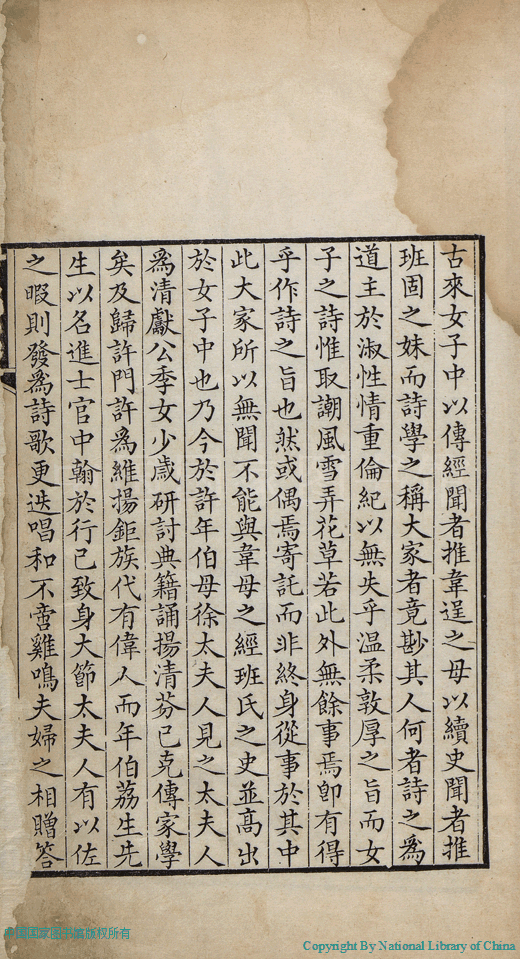 古來女子中以傳經聞者推韋逞之母以續史聞者推
班固之妹而詩學之稱大家者竟尠其人何者詩之爲
道主於淑性情重倫紀以無失乎温柔敦厚之旨而女
子之詩惟取謿風雪弄花草若此外無餘事焉卽有得
乎作詩之旨也然或偶焉寄託而非終身從事於其中
此大家所以無聞不能與韋母之經班氏之史並高出
於女子中也乃今於許年伯母徐太夫人見之太夫人
爲清獻公季女少歲研討典籍誦揚清芬已克傳家學
矣及歸許門許爲維揚鉅族代有偉人而年伯荔生先
生以名進士官中翰於行己致身大節太夫人有以佐
之暇則發爲詩歌更迭唱和不啻雞鳴夫婦之相贈答
中国国家图书馆版权所有
Copyright By National Library of China